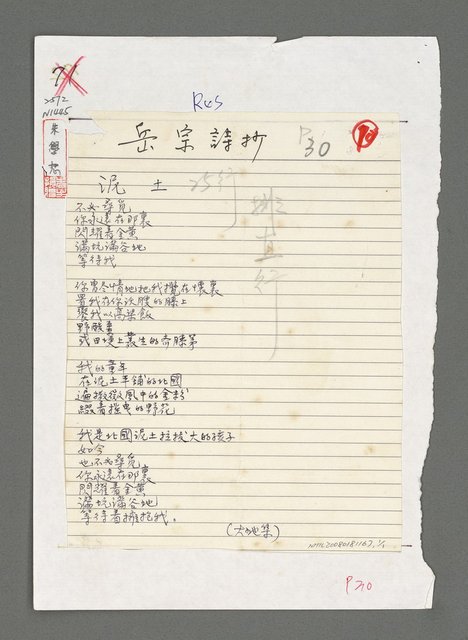 71
2572
N1445
R45
岳宗詩抄
P30
泥土
25行
排直行
不必尋覓
你永遠在那裏
閃耀着金黃
滿坑滿谷地
等待我
你曾尽情地把我攬在懷裏
置我在你決堤的膝上
餵我以高粱飯
野酸棗
我的童年
在泥土平鋪的北國
遍撒微風中的金粉
綴着搖曳的野花
我是北國泥土拉拔大的孩子
如今
也不必尋覓
你永遠在那裏
閃耀着金黃
滿坑滿谷地
等待着擁抱我。
(大地集)
NMTL20080181167,1/1
P30